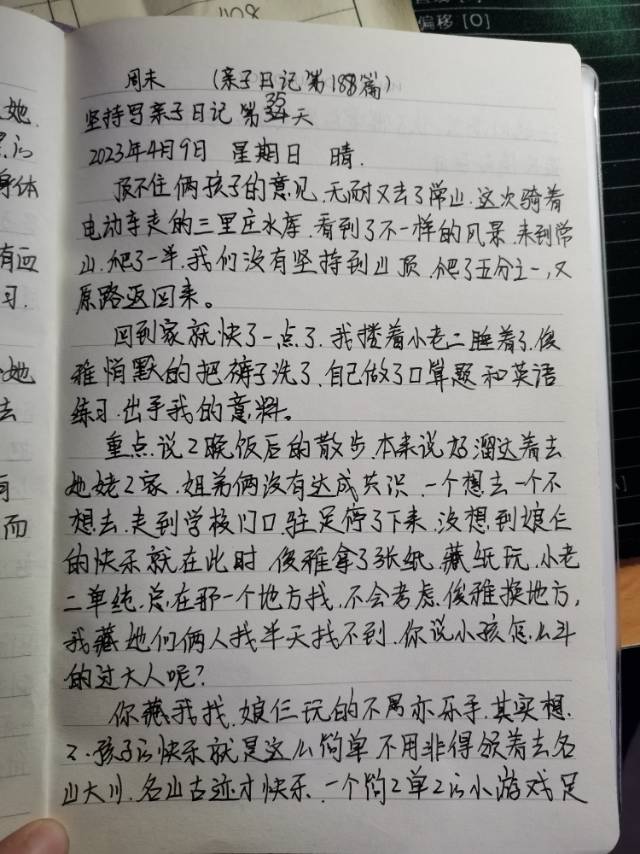 108
偏移 [O]
她
身体
有血
习.
她
去
而
周末 （亲子日记第188篇）
坚持写亲子日记 第 天
2023年4月9日 星期日 晴.
顶不住俩孩子的意见.无耐又去了常山.这次骑着
电动车走的三里庄水库.看到了不一样的风景.来到常
山.爬了一半.我们没有坚持到山顶.爬了五分之一,又
原路返回来。
回到家就快了一点了.我搂着小老二睡着了.俊
雅悄默的把裤子洗了.自己做了口算题和英语
练习.出乎我的意料。
重点说2晚饭后的散步.本来说好溜达着去
她姥2家.姐弟俩没有达成共识.一个想去一个不
想去.走到学校门口驻足停了下来.没想到娘仨
的快乐就在此时.俊雅拿了张纸.藏纸玩.小老
二单纯.总在那一个地方找.不会考虑.俊雅换地方,
我藏她们俩人找半天找不到.你说小孩怎么斗
的过大人呢?
你藏我找.娘仨玩的不易亦乐乎.其实想.
2.孩子的快乐就是这么简单.不用非得领着去名
山大川.名山古迹才快乐.一个简2单2的小游戏足